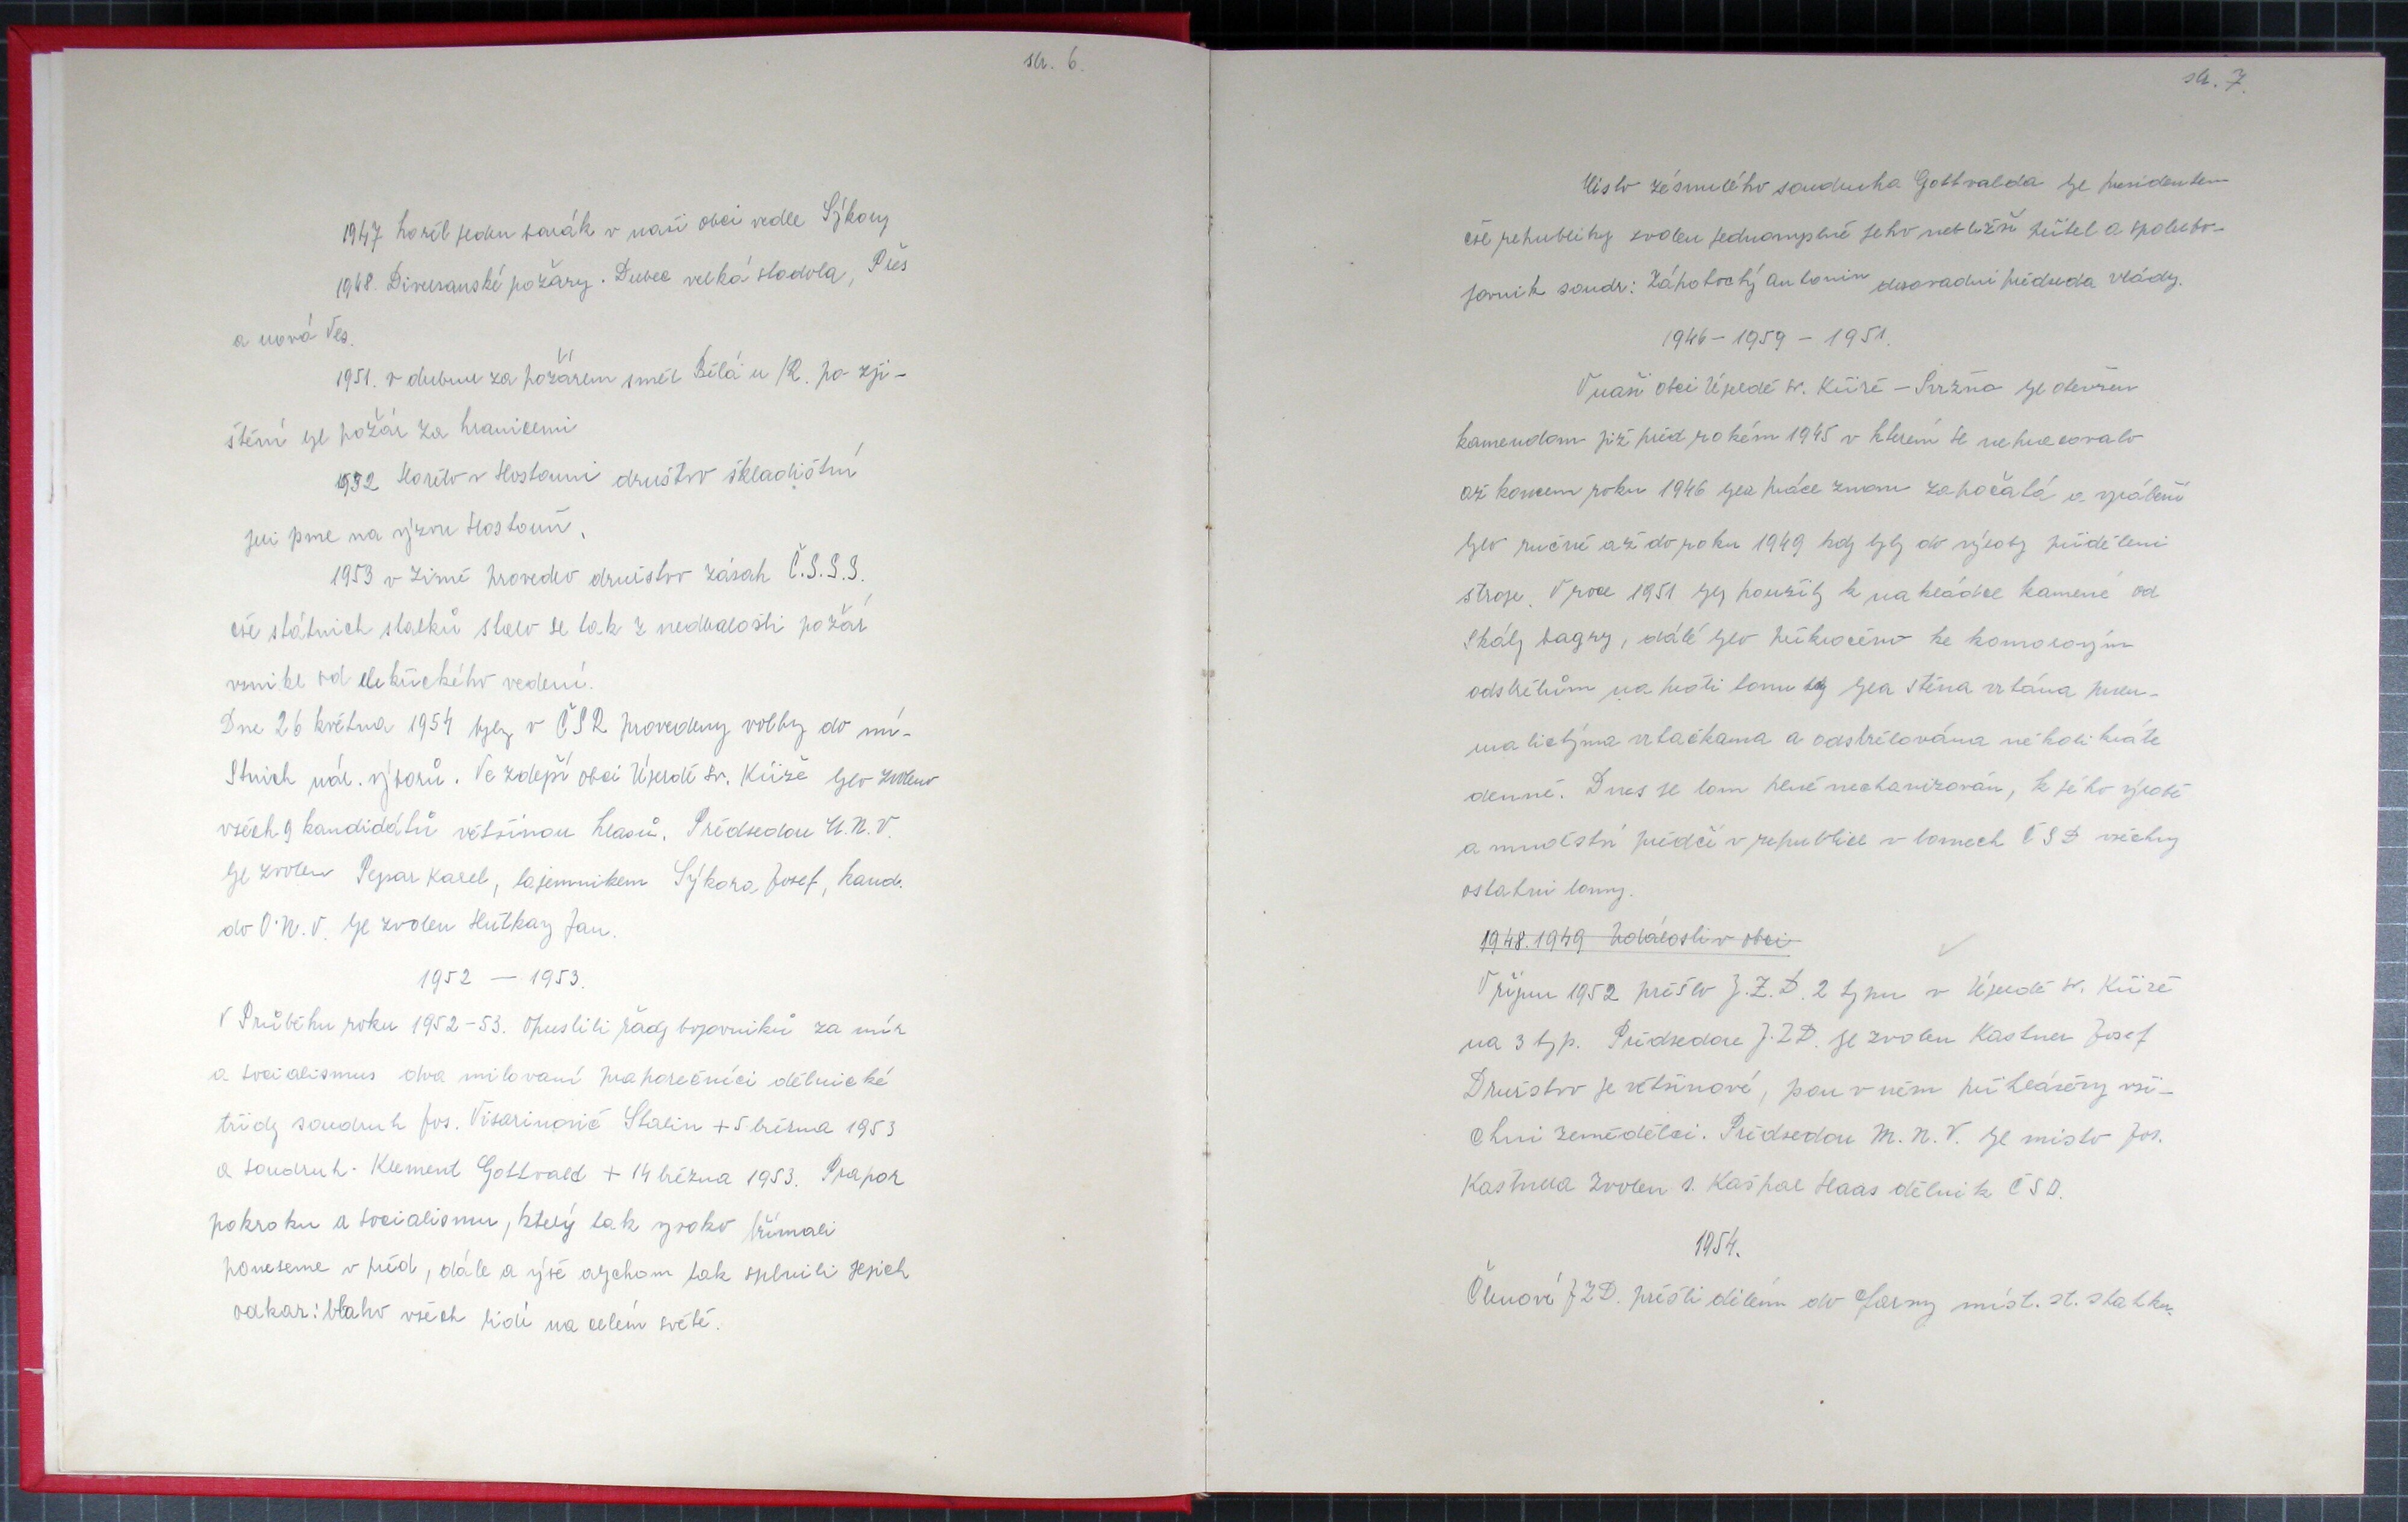 str. 6.
1947 hořel jeden barák v naši obci vedle Sýkory
1948. Diversanské požáry. Dubec velká stodola, Pleš
a nová Ves.
1951. v dubnu za požárem směr Bělá n/R. po zji-
štění byl požár za hranicemi
1952 Hořelo v Hostouni družstvo skladištní
jeli jsme na výzvu Hostouň.
1953 v zimě provedlo družstvo zásah Č.S.S.S.
čsl státních statků stalo se tak z nedbalosti požár
vznikl od elektrického vedení.
Dne 26 května 1954 byly v ČSR provedeny volby do mí-
stnich nár. výborů. Ve zdejší obci Újezdě Sv. Kříže bylo zvoleno
všech 9 kandidátů většinou hlasů. Předsedou M.N.V.
byl zvolen Pepar Karel, tajemnikem Sýkora Josef, kand.
do O.N.V. byl zvolen Hutkay Jan.
1952 — 1953.
V Průběhu roku 1952-53. opustili řady bojovniků za mír
a socialismus dva milovaní praporečníci dělnické
třídy soudruh Jos. Visarinovič Stalin + 5 března 1953
a soudruh. Klement Gottvald + 14 března 1953. Prapor
pokroku a socialismu, který tak vysoko třímali
poneseme v před, dále a výše abychom tak splnili jejich
odkaz: blaho všech lidí na celém světě.
str. 7.
Místo zesnulého soudruha Gottvalda byl presidentem
čsl republiky zvolen jednomyslně jeho nebližší přítel a spolubo-
jovnik soudr: Zápotocký Antonin dosavadní předseda vlády.
1946 - 1959 - 1951.
V naší obci Újezdě sv. Kříže - Svržno byl otevřen
kamenolom již před rokem 1945 v kterém se nepracovalo
až koncem roku 1946 byla práce znovu započatá a vyrábění
bylo ručně až do roku 1949 kdy byly do výroby přiděleni
stroje. V roce 1951 byly použity k nakládce kamene od
skály bagry, dále bylo přikročeno ke komorovým
odstřelům na proti tomu by byla stěna vrtána pneu-
matickýma vrtačkama a odstřelována několikráte
denně. Dnes je lom plně mechanizován, k jeho výrobě
a množství předčí v republice v lomech ČSD všechny
ostatni lomy.
1948. 1949 Události v obci
V říjnu 1952 přešlo J.Z.D. 2 typu v Újezdě sv. Kříže
na 3 typ. Předsedou J.Z.D. je zvolen Kastner Josef
Družstvo je většinové, jsou v něm přihlášeny vši-
chni zemědělci. Předsedou M.N.V. byl místo Jos.
Kastnera zvolen s. Kašpar Haas dělnik ČSD.
1954.
Členové JZD. přešli dílem do farmy míst. st. statku.